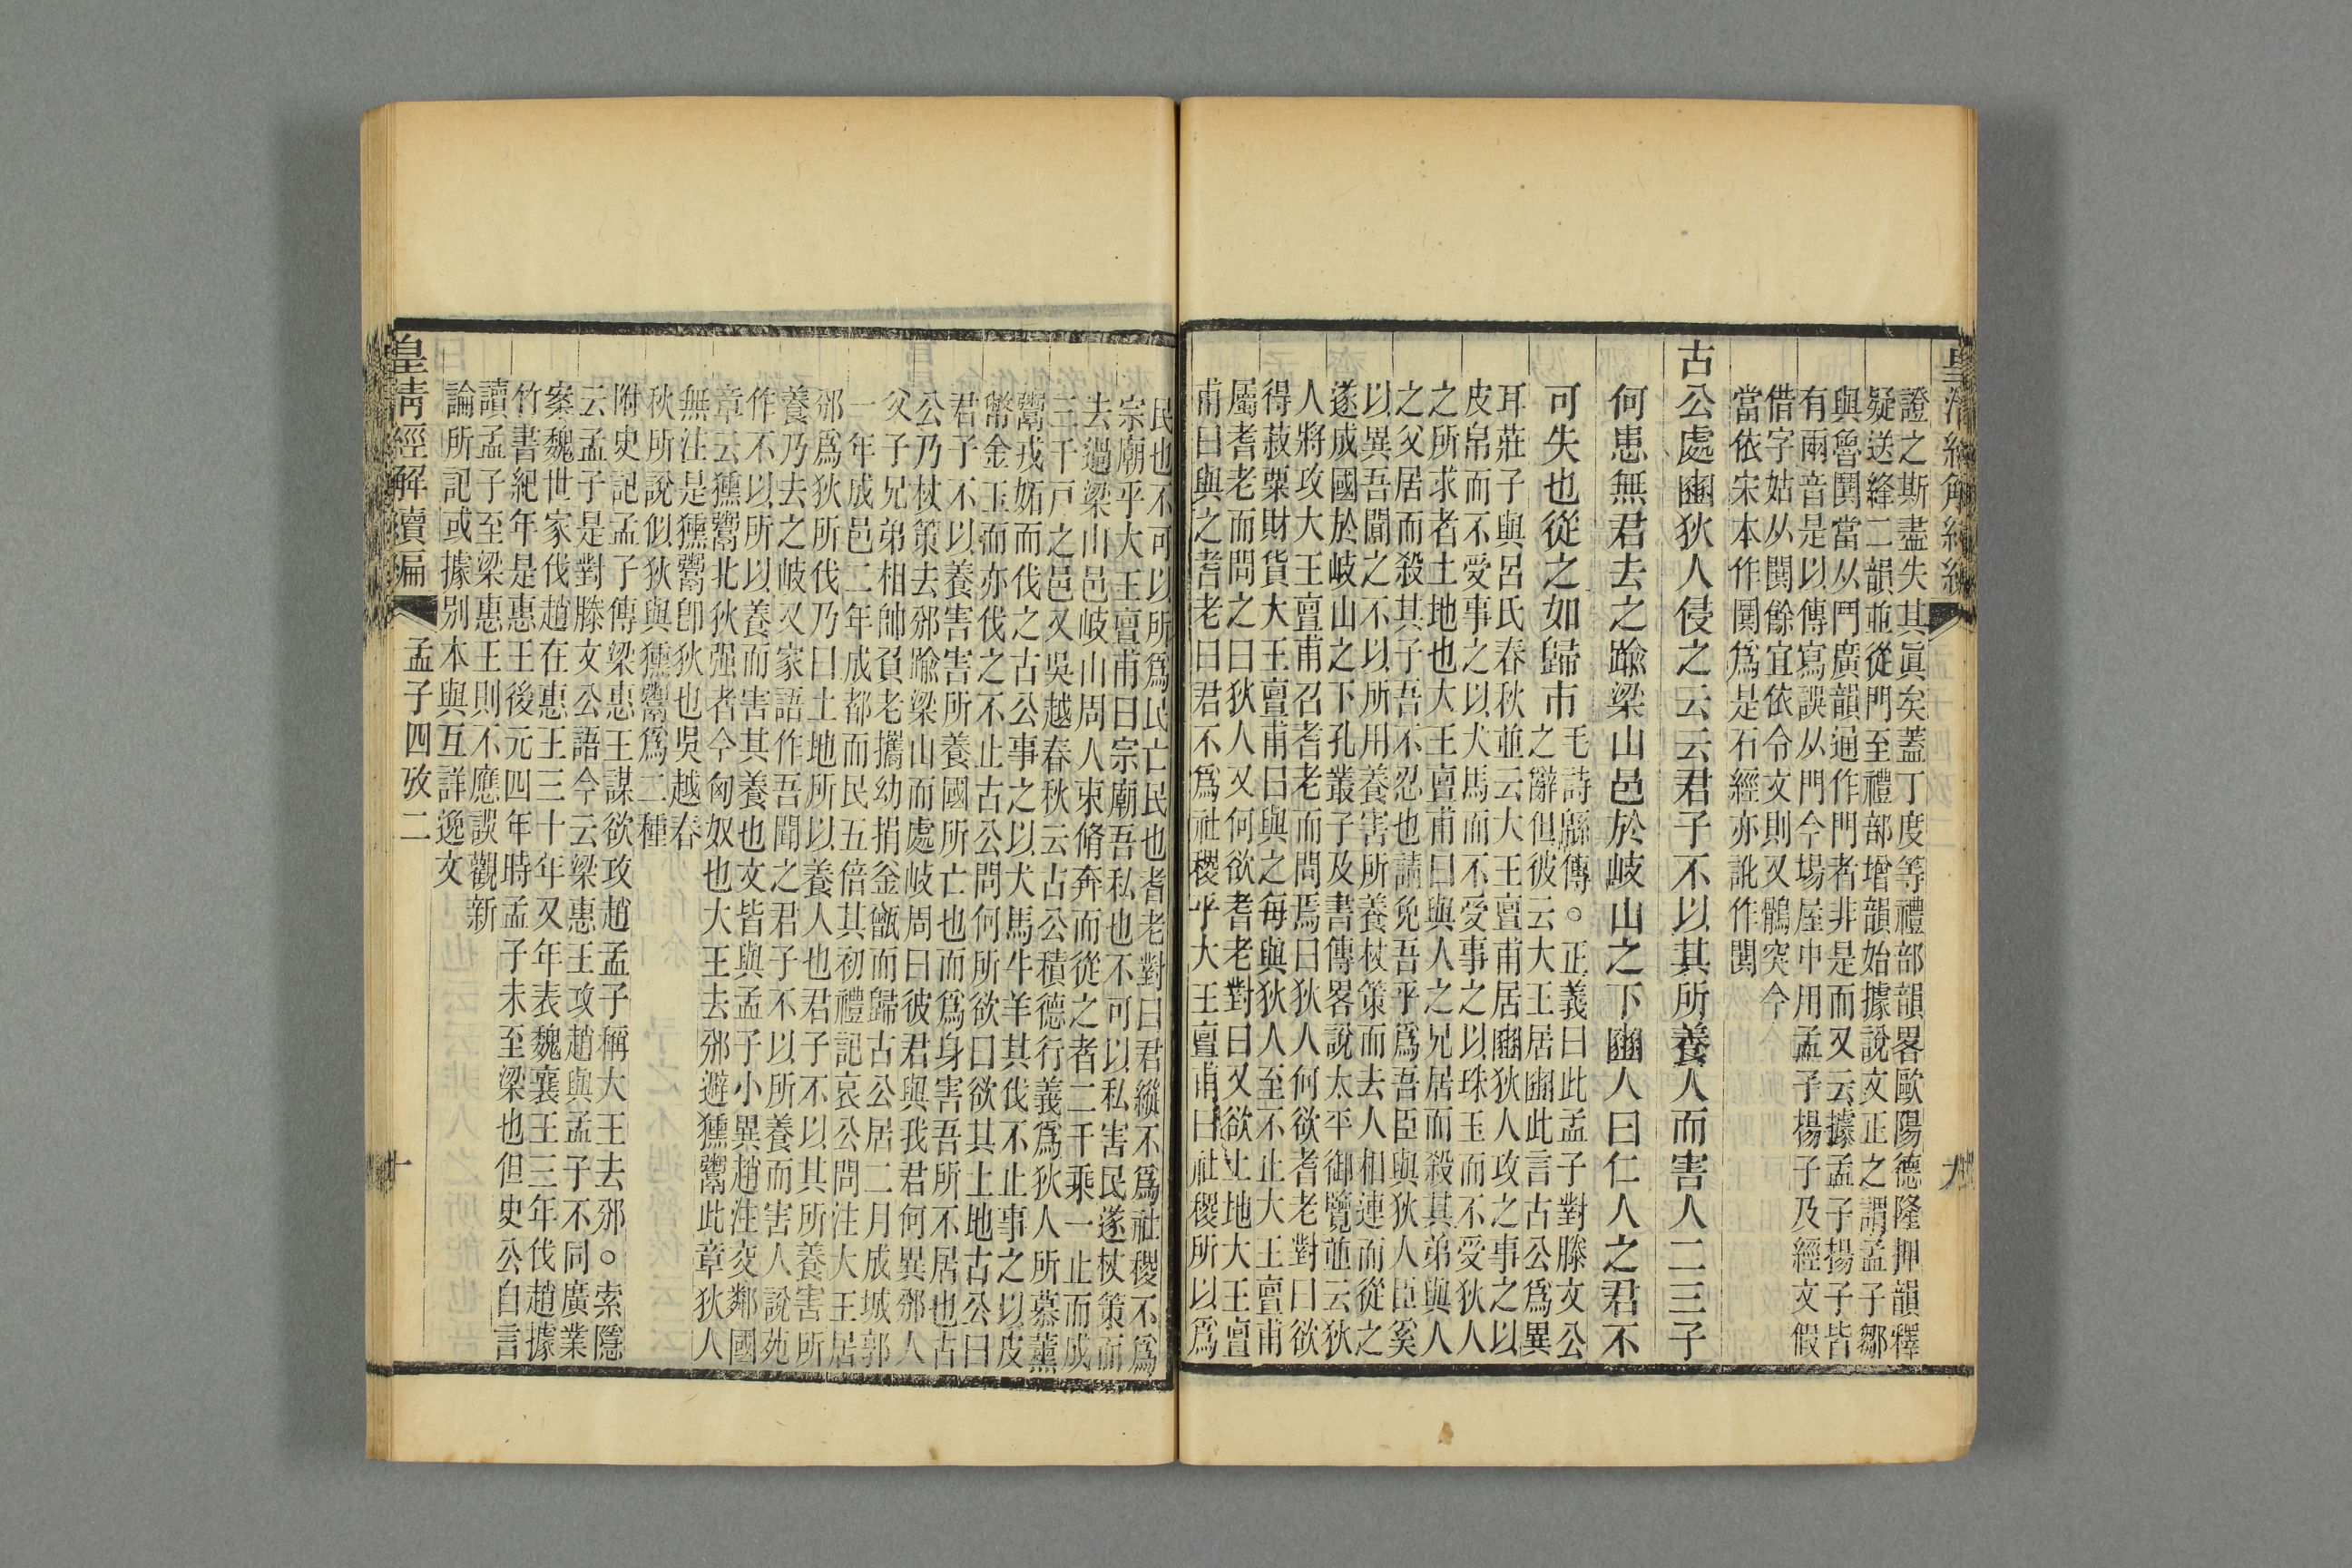 證之斯盡失其眞矣蓋丁度等禮部韻畧歐陽德隆押韻釋
疑送絳二韻並從門至禮部增韻始據說文正之謂孟子鄒
與魯鬨當从鬥廣韻通作鬥者非是而又云據孟子揚子皆
有兩音是以傳寫誤从門今場屋中用孟子楊子及經文假
借字姑从閧餘宜依令文則又鶻突今
當依宋本作鬨爲是石經亦訛作閧
古公處豳狄人侵之云云君子不以其所養人而害人二三子
何患無君去之踰梁山邑於岐山之下豳人曰仁人之君不
可失也從之如歸市
毛詩緜傳。正義曰此孟子對滕文公
之辭但彼云大王居豳此言古公爲異
耳莊子與呂氏春秋並云大王亶甫居豳狄人攻之事之以
皮帛而不受事之以犬馬而不受事之以珠玉而不受狄人
之所求者土地也大王亶甫曰與人之兄居而殺其弟與人
之父居而殺其子吾不忍也請免吾乎爲吾臣與狄人臣奚
以異吾聞之不以所用養害所養杖策而去人相連而從之
遂成國於岐山之下孔叢子及書傳畧說太平御覽並云狄
人將攻大王亶甫召耆老而問焉曰狄人何欲耆老對曰欲
得菽粟財貨大王亶甫曰與之每與狄人至不止大王亶甫
屬耆老而問之曰狄人又何欲耆老對曰又欲土地大王亶
甫曰與之耆老曰君不爲社稷乎大王亶甫曰社稷所以爲
民也不可以所爲民亡民也耆老對曰君縱不爲社稷不爲
宗廟乎大王亶甫曰宗廟吾私也不可以私害民遂杖策而
去過梁山邑岐山周人東脩奔而從之者二千乘一止而成
三千戸之邑又吳越春秋云古公積德行義爲狄人所慕薰
鬻戎妬而伐之古公事之以犬馬牛羊其伐不止事之以皮
幣金玉而亦伐之不止古公問何所欲曰欲其土地古公曰
君子不以養害害所養國所亡也而爲身害吾所不居也古
公乃杖策去邠踰梁山而處岐周曰彼君與我君何異邠人
父子兄弟相帥負老攜幼捐釜甑而歸古公居二月成城郭
一年成邑二年成都而民五倍其初禮記哀公問注大王居
邠爲狄所伐乃曰土地所以養人也君子不以其所養害所
養乃去之岐又家語作吾聞之君子不以所養而害人說苑
作不以所以養而害其養也文皆與孟子小異趙注交鄰國
章云獯鬻北狄强者今匈奴也大王去邠避獯鬻此章狄人
無注是獯鬻卽狄也吳越春
秋所說似狄與獯鬻爲二種
附史記孟子傳梁惠王謀欲攻趙孟子稱大王去邠。索隱
云孟子是對滕文公語今云梁惠王攻趙與孟子不同廣業
案魏世家伐趙在惠王三十年又年表魏襄王三年伐趙據
竹書紀年是惠王後元四年時孟子未至梁也但史公自言
讀孟子至梁惠王則不應誤觀新
論所記或據别本與互詳逸文
皇淸經解賣扁
孟子四攷二
十